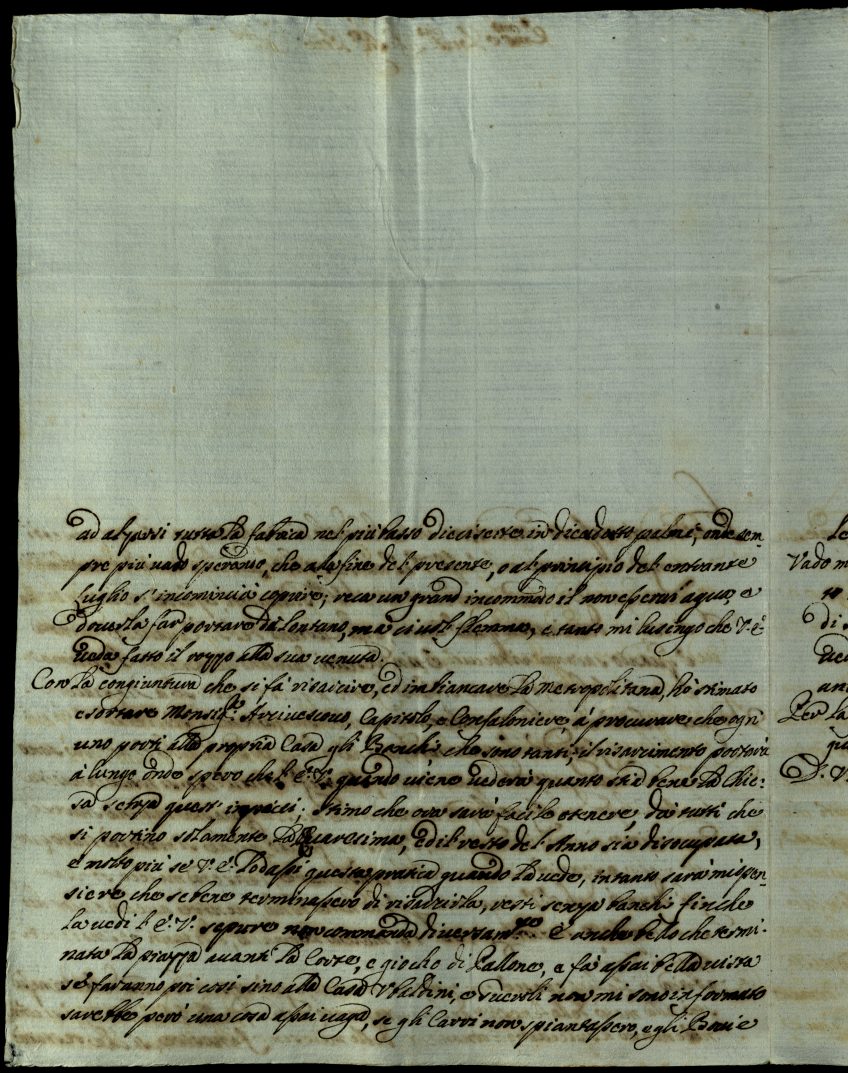 ad alzarsi tutta la fabrica nel più basso diecisette in dicidotto palmi; onde sem-
pre più vado sperando, che a la fine del presente, o al principio del entrante
luglio s'incominci a coprire; reca un grand incommodo il non esservi aqua, e
doverla far portare da lontano, ma ci vuol flemma, e tanto mi lusingo che V. E.
veda fatto il rozzo alla sua venuta.
Con la congiuntura che si fà risarcire, ed imbiancare la Metropolitana, hò stimato
esortare Monsig.r Arcivescovo, Capitolo, e Confaloniere à procurare che ogni
uno porti alla propria Casa gli Banchi che sono tanti; il risarcimento portarà
à lungo onde spero che l'E. V. quando viene vederà quanto stia bene la Chie-
sa senza quest' impicci; stimo che ora sarà facile otenere, da tutti che
si portino solamente la Quaresima, ed il resto del Anno sia disocupata,
e molto più se V. E. lodassi questa pratica quando la vede, intanto sarà mi pen-
siere che sebene terminassero di risarcirla, resti senza banchi finche
la vedi l'E. V. sepure non commanda diversam.te E anche bello che termi-
nata la piazza avanti la Corte, e gioco di Pallone, e fà assai bella vista
se faranno poi così sino alla Casa Ubaldini, e non mi sono informato
sarebbe però una cosa assai vaga, se gli Carri non spiantassero, e gli Bovi e
Vado m
di s
Per la